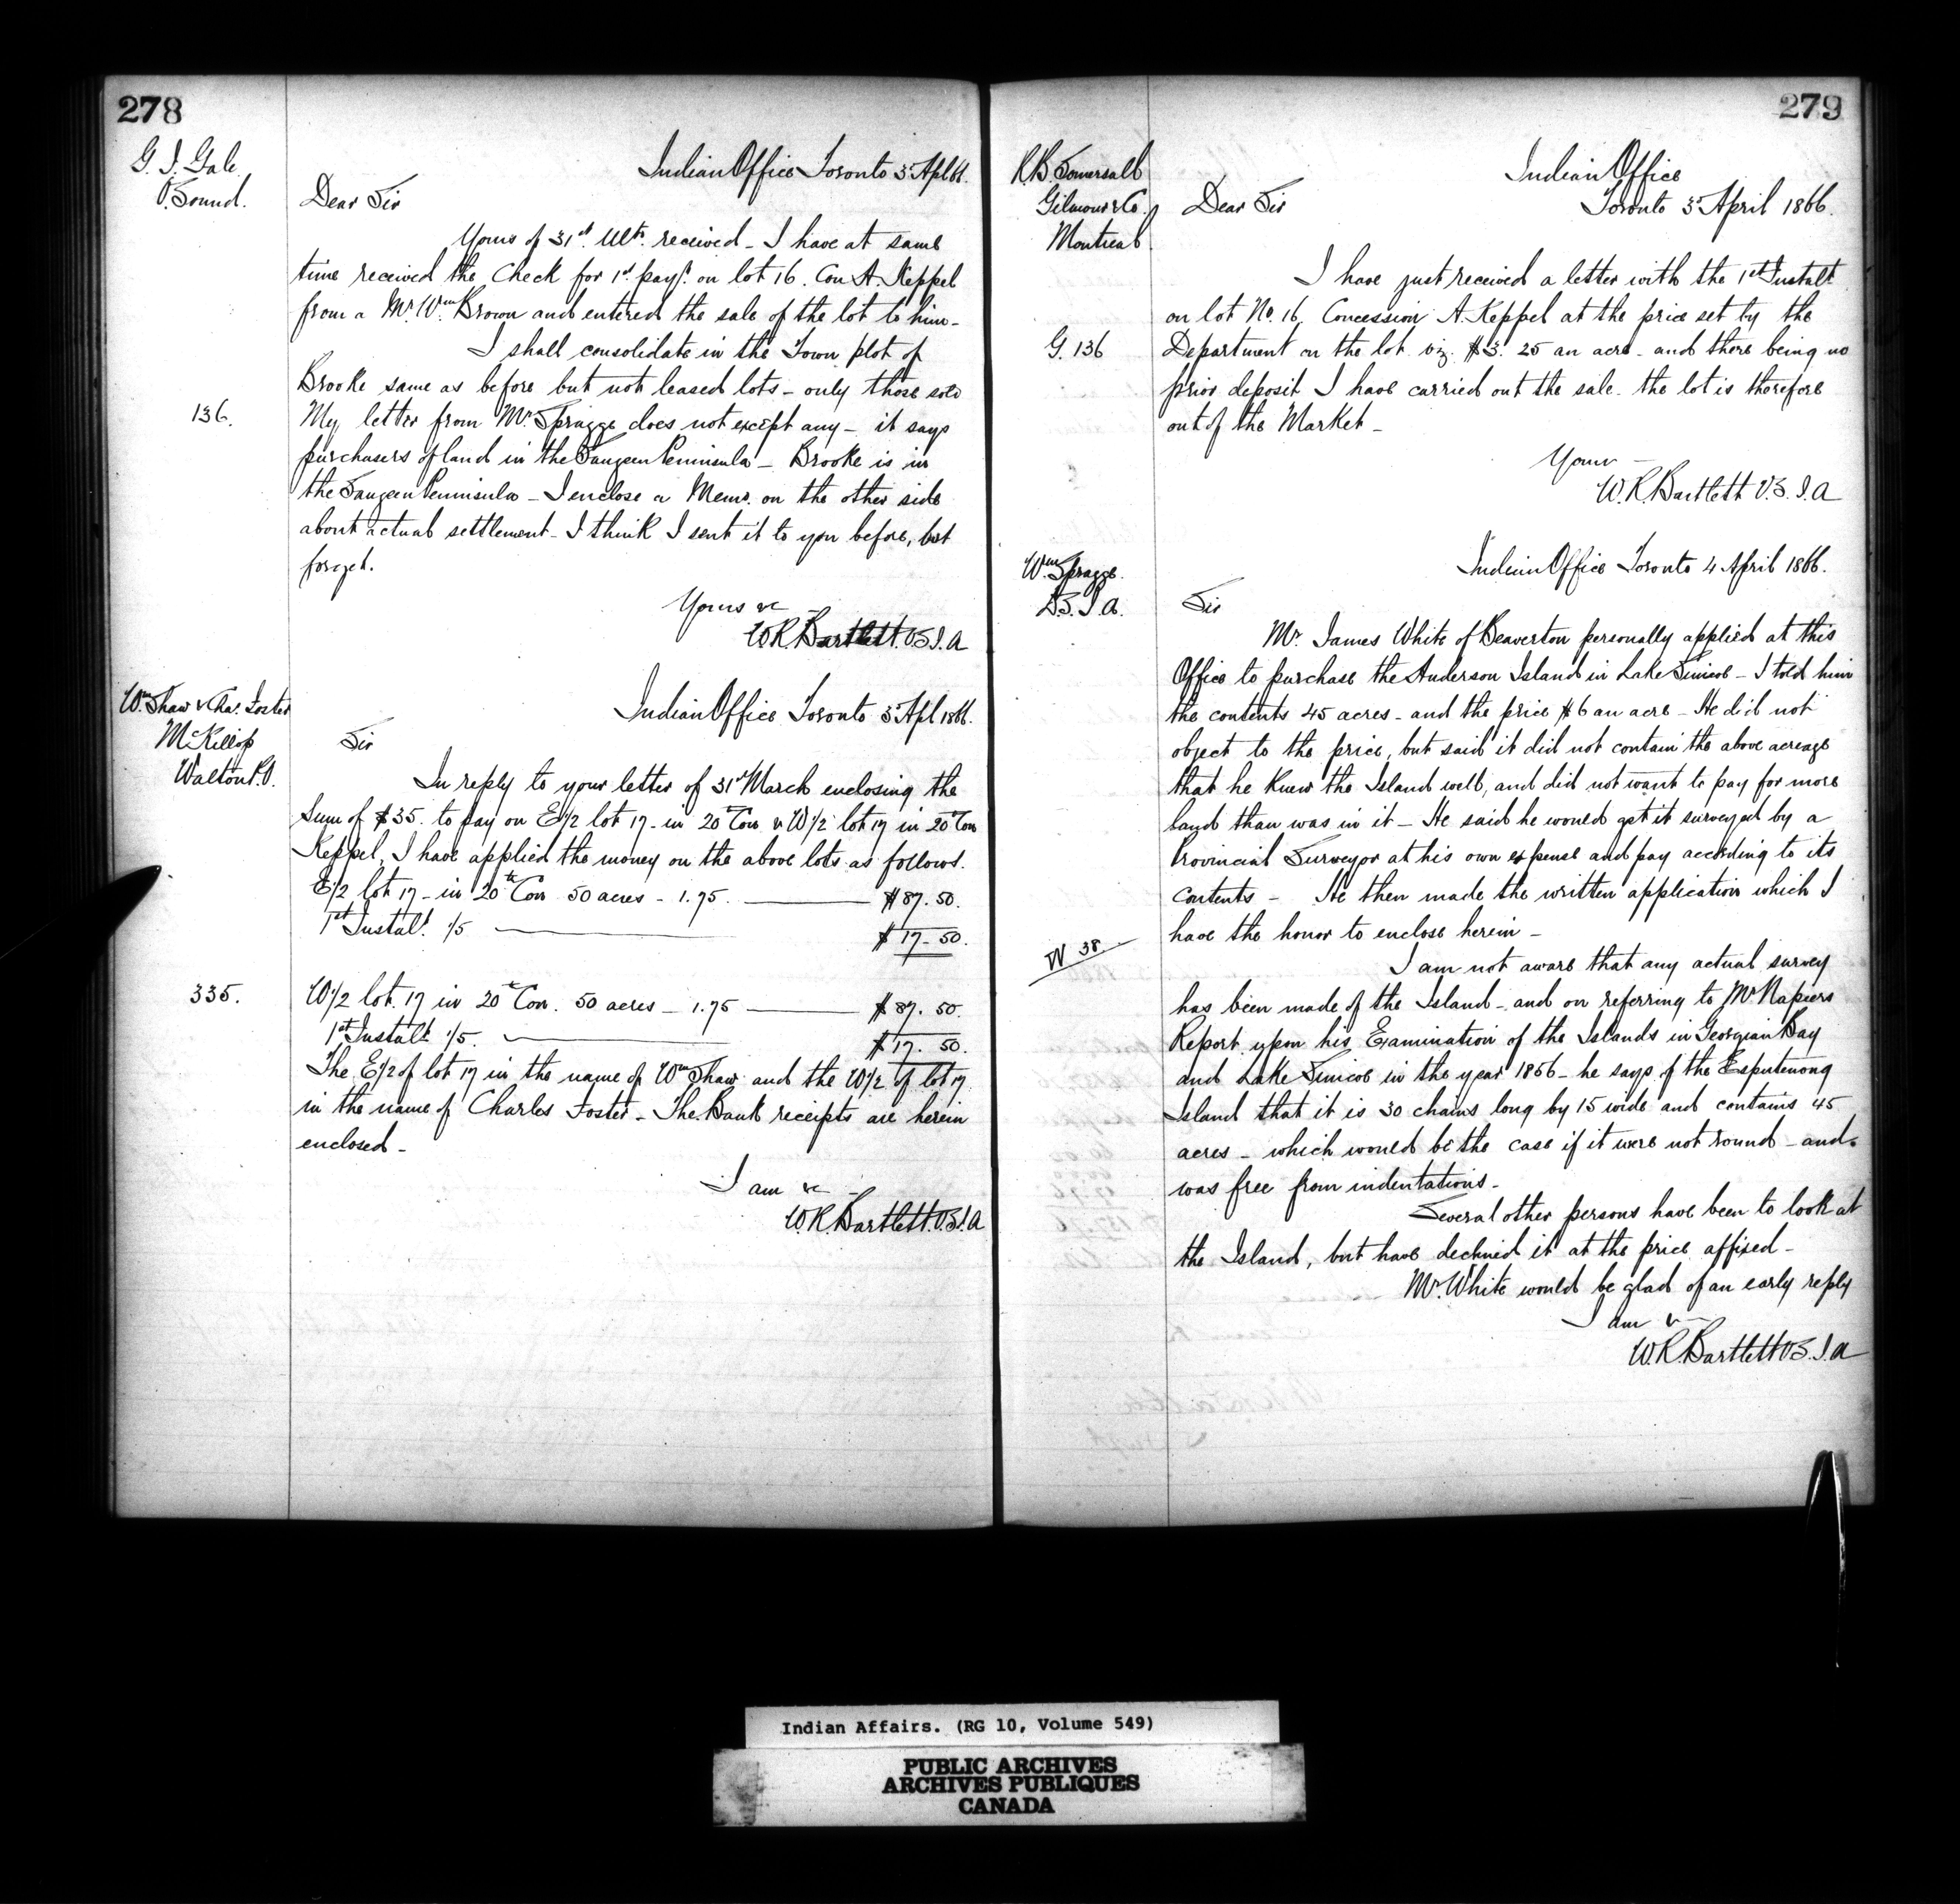 278
G. J. Gale
O. Sound.
Indian Office Toronto 3 Apl 66.
Dear Sir
Yours of 31st Ulto. received - I have at same
time received the Check for 1st payt. on lot 16. Con A. Keppel
from a Mr. Wm. Brown and entered the sale of the lot to him -
I shall consolidate in the Town plot of
Brooke same as before but not leased lots - only those sold
136.
My letter from Mr. Spragge does not except any - it says
purchasers of land in the Saugeen Peninsula - Brooke is in
the Saugeen Peninsula - I enclose a Memo. on the other side
about actual settlement - I think I sent it to you before, but
forget.
Yours &c
W.R. Bartlett. V.S.I.A
Wm. Shaw & Chas. Foster
McKillop
Walton P.O.
Indian Office Toronto 3 Apl 1866.
Sir
In reply to your letter of 31st March enclosing the
Sum of $35. to pay on E1/2 lot 17 - in 20th Con & W1/2 lot 17 in 20th Con
Keppel, I have applied the money on the above lots as follows.
E1/2 lot 17 - in 20th Con 50 acres - 1.75. $87.50.
1st Instalt. 1/5 $17-50.
335.
W1/2 lot. 17 in 20th Con. 50 acres - 1.75 $87.50.
1st Instalt 1/5. $17.50.
The E1/2 of lot 17 in the name of Wm Shaw and the W1/2 of lot 17
in the name of Charles Foster - The Bank receipts are herein
enclosed -
I am &c
W.R. Bartlett. V.S.I.A
279
R.B. Somersall
Gilmour & Co.
Montreal
Indian Office
Toronto 3 April 1866.
Dear Sir
I have just received a letter with the 1st Instalt
on lot No. 16. Concession A. Keppel at the price set by the
G. 136
Department on the lot viz. $3.25 an acre - and there being no
prior deposit I have carried out the sale. the lot is therefore
out of the Market -
Yours
W.R. Bartlett V.S.I.A
Wm Spragge.
D.S.I.A.
Indian Office Toronto 4 April 1866.
Sir
Mr. James White of Beaverton personally applied at this
Office to purchase the Anderson Island in Lake Simcoe - I told him
the contents 45 acres - and the price $6 an acre - He did not
object to the price, but said it did not contain the above acreage
that he knew the Island well, and did not want to pay for more
land than was in it - He said he would get it surveyed by a
Provincial Surveyor at his own expense and pay according to its
contents - He then made the written application which I
have the honor to enclose herein -
W 38
I am not aware that any actual survey
has been made of the Island - and on referring to Mr. Napiers
Report upon his Examination of the Islands in Georgian Bay
and Lake Simcoe in the year 1856 - he says of the Esputenong
Island that it is 30 chains long by 15 wide and contains 45
acres - which would be the case if it were not round - and
was free from indentations -
Several other persons have been to look at
the Island, but have declined it at the price affixed -
Mr. White would be glad of an early reply
I am &
W.R. Bartlett V.S.I.A
Indian Affairs. (RG 10, Volume 549)
PUBLIC ARCHIVES
ARCHIVES PUBLIQUES
CANADA